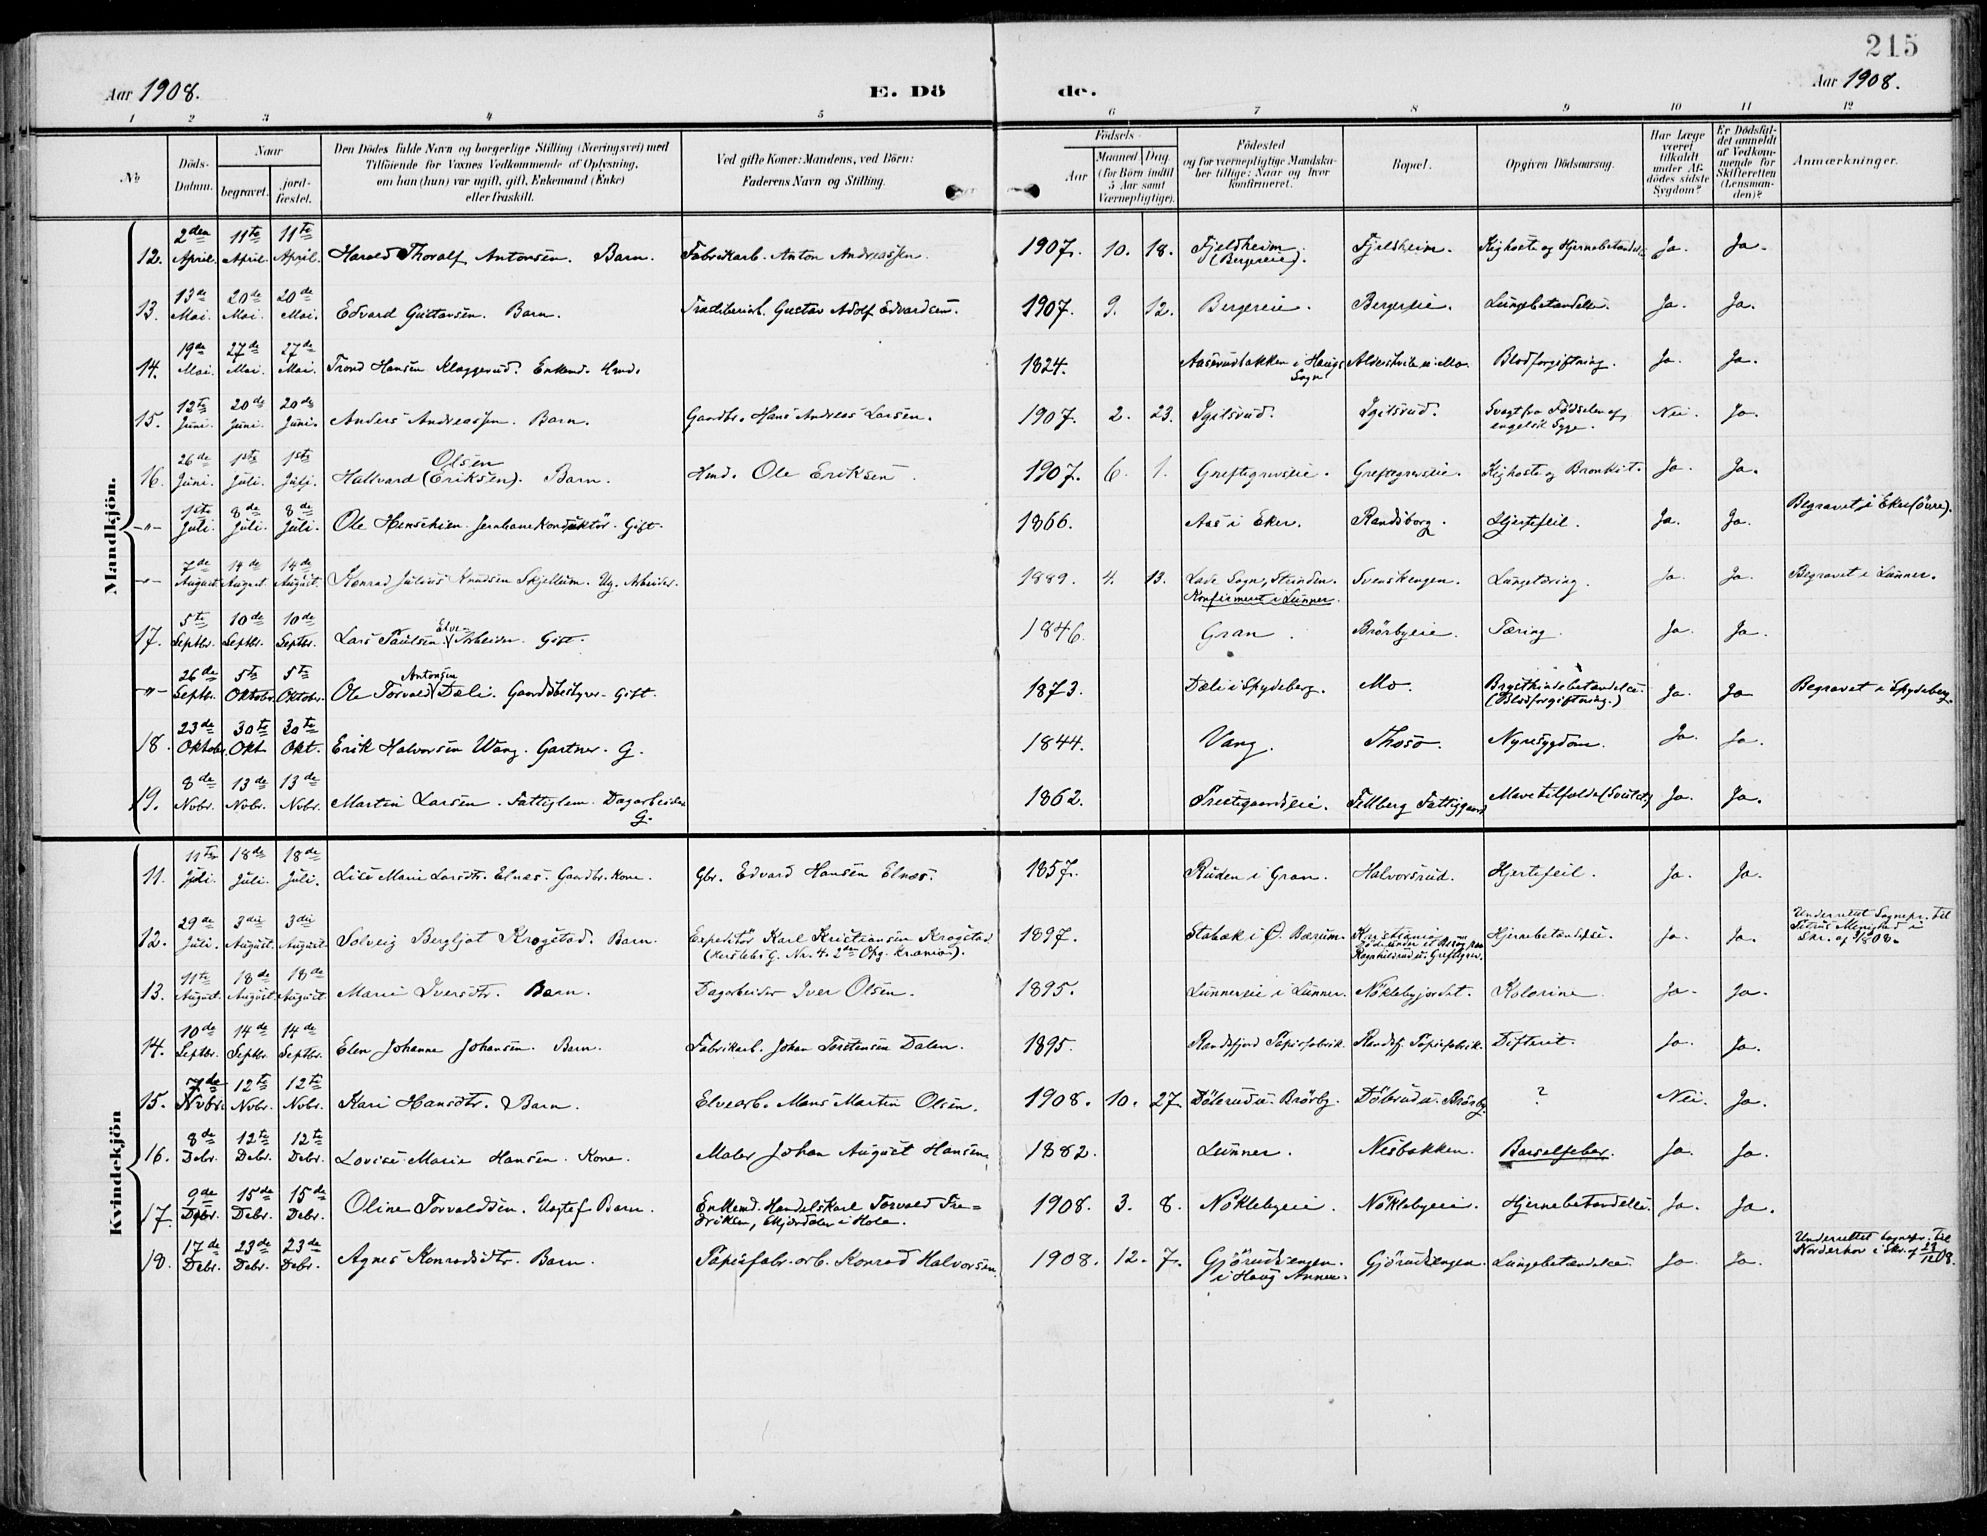 215
Aar 1908. E. Dö de. Aar 1908.
1 2 3 4 5 6 7 8 9 10 11 12
№ Döds-Datum. Naar begravet. jord-fæstet. Den Dödes fulde Navn og borgerlige Stilling (Næringsvei) med Tilföiende for Voxnes Vedkommende af Oplysning, om han (hun) var ugift, gift, Enkemand (Enke) eller fraskilt. Ved gifte Koner: Mandens, ved Börn: Faderens Navn og Stilling. Födsels- Aar Maaned Dag. (for Börn indtil 5 Aar samt Værnepligtige). Födested og for værnepligtige Mandskaber tillige: Naar og hvor konfirmeret. Bopæl. Opgiven Dödsaarsag. Har Læge været tilkaldt under Afdödes sidste Sygdom? Er Dödsfaldet anmeldt af Vedkommende for Skifteretten (Lensmanden)? Anmærkninger.
Mandkjön.
12. 2den April. 11te April 11te April. Harald Thoralf Antonsen. Barn. Fabrikarb. Anton Andreassen. 1907. 10. 18. Fjeldheim (Bergereie). Fjeldheim. Kighoste og Hjernebetændelse Ja. Ja.
13. 13de Mai. 20de Mai. 20de Mai. Edvard Gustavsen. Barn. Gustav Adolf Edvardsen. 1907. 9. 12. Bergereie. Bergereie. Lungebetændelse. Ja. Ja.
14. 19de Mai. 27de Mai. 27de Mai. Trond Hansen Klaggerud. Enkemd. Hmd. 1824. Aaserudbakken i Haugs Sogn Alderstvile u. Mo. Blodforgiftning. Ja. Ja.
15. 12te Juni. 20de Juni. 20de Juni. Anders Andreassen. Barn. Gaardbr. Hans Andreas Larsen. 1907. 2. 23. Igilsrud. Igilsrud. Svagt fra Födselen af, engelsk Syge. Nei. Ja.
16. 26de Juni. 1ste Juli. 1ste Juli. Hallvard Olsen (Eriksen). Barn. Hmd. Ole Eriksen. 1907. 6. 1. Greftegreveie. Greftegreveie. Kighoste og Bronkit. Ja. Ja.
-"- 1ste Juli. 8de Juli. 8de Juli. Ole Henschien. Jernbanekonduktör. Gift. 1866. Aas i Eker. Randsborg. Hjertefeil. Ja. Ja. Begravet i Eker (övre).
-"- 7de August. 14de August 14de August. Konrad Julius Knudsen Skjellum. Ug. Arbeider. 1889. 4. 13. Lade Sogn, Strinden. Konfirmert i Lunner. Svenskengen. Lungetæring. Ja. Ja. Begravet i Lunner.
17. 5te Septbr. 10de Septbr. 10de Septbr. Lars Paulsen. Elve-Arbeider. Gift. 1846. Gran. Brörbyeie. Tæring. Ja. Ja.
-"- 26de Septbr. 5te Oktober 5te Oktober. Ole Torvald Antonsen Dæli. Gaardsbestyrer. Gift. 1873. Dæli i Spydeberg. Mo. Brysthindebetændelse (Blodforgiftning.) Ja. Ja Begravet i Spydeberg.
18. 23de Oktober. 30te Okt. 30te Okt. Erik Halvorsen Wang. Gartner. G. 1844. Vang. Thoso. Nyresygdom. Ja. Ja.
19. 8de Novbr. 13de Novbr. 13de Novbr. Martin Larsen. Fattiglem. Dagarbeider G. 1862. Prestegaardseie. Fellberg Fattiggaard Mavetilfælde (Svulst) Ja. Ja.
Kvindekjön
11. 11te Juli. 18de Juli. 18de Juli. Lise Marie Larsdtr. Elnæs. Gaardbr. Kone. Gbr. Edvard Hansen Elnæs. 1857. Ruden i Gran. Halvorsrud. Hjertefeil. Ja. Ja.
12. 29de Juli. 3die August. 3die August. Solveig Bergljot Krogstad. Barn. Expeditör Karl Kristiansen Krogstad (Herslebs G. Nr. 4. 2den Opg. Krania). 1897. Stabæk i Ö. Bærum. Kristiania. Döde under et Besøg paa Ragnhildrud u. Greftegrev. Hjernebetændelse. Ja. Ja. Underrettet Sognepr. til Petrus Menighed i Skr. af 3/8 08.
13. 11te August. 18de August 18de August. Marie Iversdtr. Barn. Dagarbeider Iver Olsen. 1895. Lunnereie i Lunner. Nöklebyjordet. Kolerine. Ja. Ja.
14. 10de Septbr. 14de Septbr. 14de Septbr. Elen Johanne Johansen. Barn. Fabrikarb. Johan Torstensen Dalen. 1895. Randsfjord Papirfabrik. Randsfj. Papirfabrik. Difterit. Ja. Ja.
15. 7de Novbr. 12te Novbr. 12te Novbr. Kari Hansdtr. Barn. Elvearb. Hans Martin Olsen. 1908. 10. 27 Dölerud u. Brörby. Dölerud u. Brörby ? Nei. Ja.
16. 8de Debr. 12te Debr. 12te Debr. Lovise Marie Hansen. Kone. Maler Johan August Hansen. 1882. Lunner. Nesbakken. Barselfeber. Ja. Ja.
17. 9de Debr. 15de Debr. 15de Debr. Oline Torvaldsen. Uægtef. Barn. Enkemd. Handelskarl Torvald Fredriksen, Skjærdalen i Hole. 1908. 3. 8. Nöklebyeie. Nöklebyeie. Hjernebetændelse. Ja. Ja.
18. 17de Debr. 23de Debr. 23de Debr. Agnes Konradsdtr. Barn. Papirfabr. arb. Konrad Halvorsen. 1908. 12. 7. Gjörudsengen. i Haug Annex. Gjörudsengen. Lungebetændelse. Ja. Ja. Underrettet Sognepr. til Norderhov i Skr. af 29/12 08.